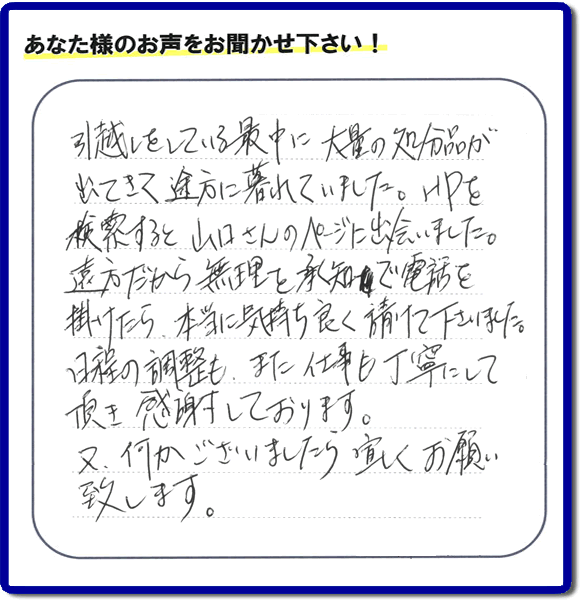 あなた様のお声をお聞かせ下さい！
引越しをしている最中に大量の処分品が
出てきて途方に暮れていました。HPを
検索すると山口さんのページに出会いました。
遠方だから無理を承知で電話を
掛けたら、本当に気持ち良く請けて下さいました。
日程の調整も、また仕事も丁寧にして
頂き感謝しております。
又、何かございましたら宜しくお願い
致します。